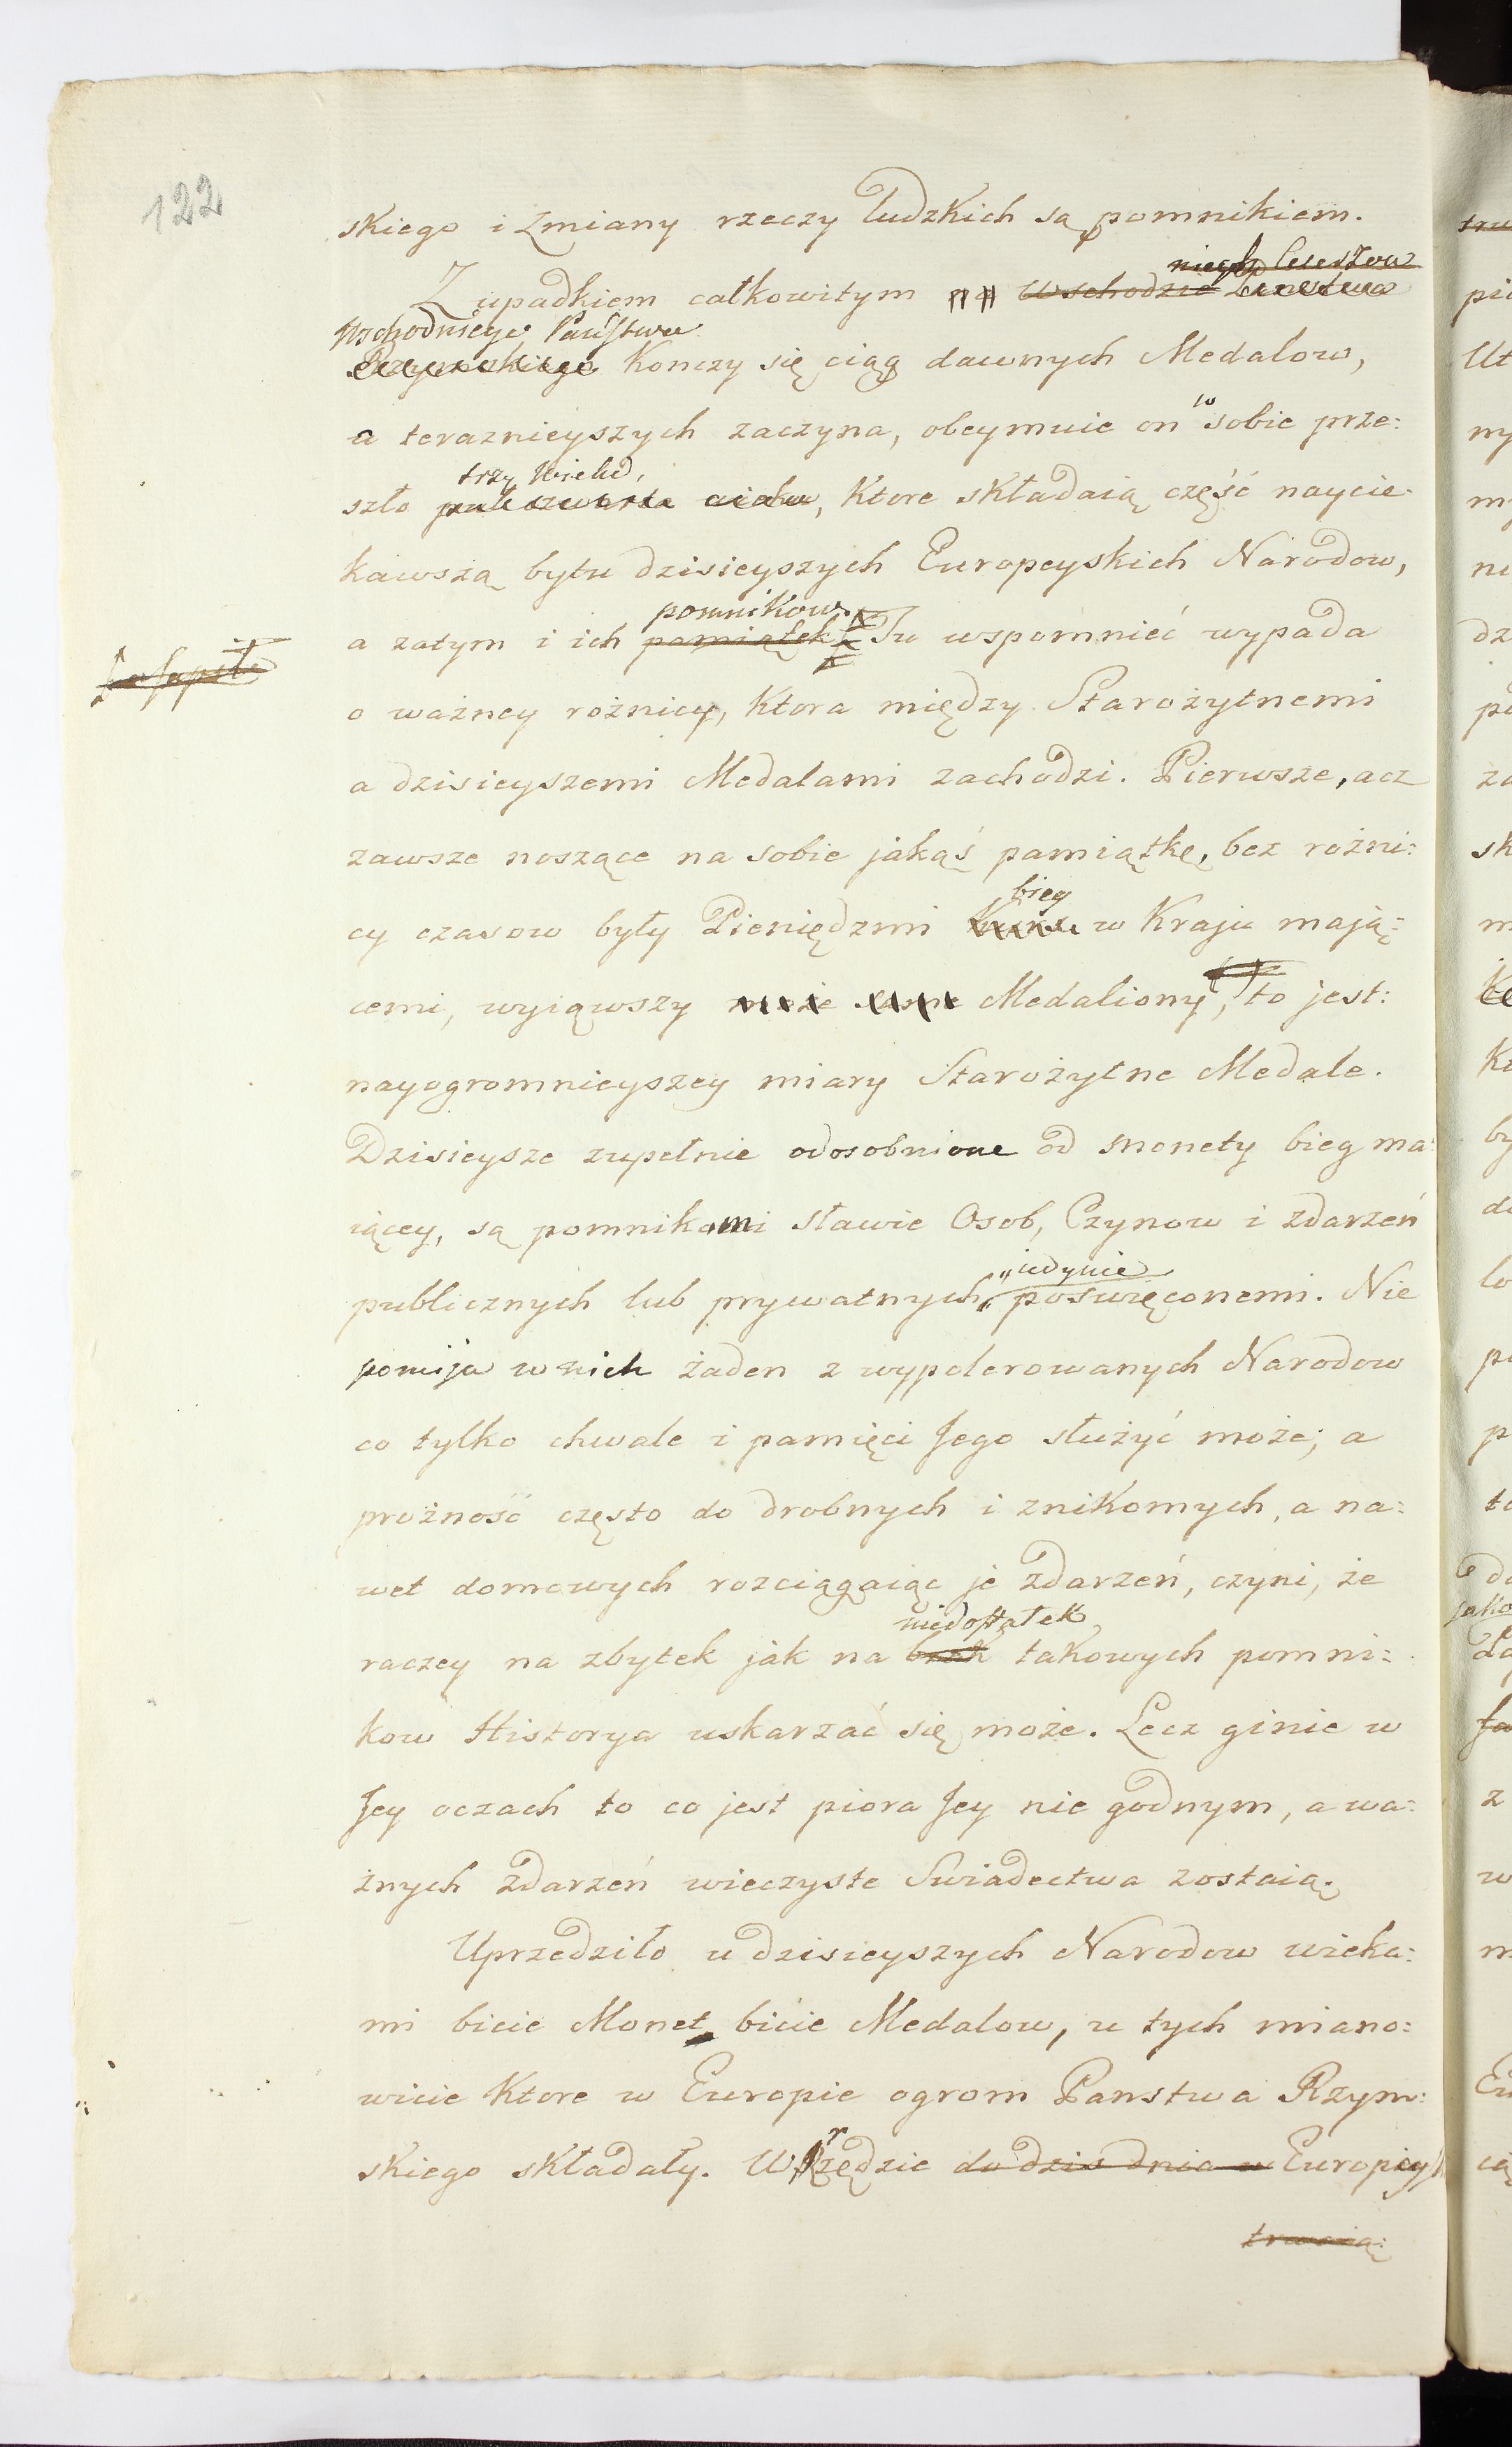 122
skiego i Zmiany rzeczy Ludzkich są pomnikiem.
Cesarstwa
Z upadkiem całkowitym na Wschodzie
Wschodniego Państwa
Rzymskiego Konczy się ciąg dawnych Medalow,
w
a teraznieyszych zaczyna, obeymuie on sobie prze:
trzy Wieki,
szło puł czwarta wieku, Ktore składaią część naycie:
kawszą bytu dzisieyszych Europeyskich Narodow,
pomnikow.
a zatym i ich pamiątek. Tu wspomnieć wypada
o ważney rożnicy, Ktora między Starożytnemi
a dzisieyszemi Medalami zachodzi. Pierwsze, acz
zawsze noszące na sobie jakąś pamiątkę, bez rożni:
bieg
cy czasow były Pieniędzmi Kurs w Kraju mają:
cemi, wyiąwszy może same Medaliony, to jest:
nayogromnieyszey miary Starożytne Medale.
Dzisieysze zupełnie odosobnione od monety bieg ma:
iącey, są pomnikami sławie Osob, Czynow i zdarzeń
iedynie
publicznych lub prywatnych, poswięconemi. Nie
pomija w nich żaden z wypolerowanych Narodow
co tylko chwale i pamięci Jego służyć może; a
prożność często do drobnych i zniKomych, a na:
wet domowych rozciągaiąc je zdarzeń, czyni, że
niedostatek
raczey na zbytek jak na brak takowych pomni:
kow Historya uskarzać się może. Lecz ginie w
Jey oczach to co jest piora Jey nie godnym, a wa:
żnych zdarzeń wieczyste Swiadectwa zostaią.
Uprzedziło u dzisieyszych Narodow wieka:
mi bicie Monet, bicie Medalow, u tych miano:
wicie Ktore w Europie ogrom Panstwa Rzym:
skiego składały. W rzędzie do dzis dnia w Europie
trwaią: